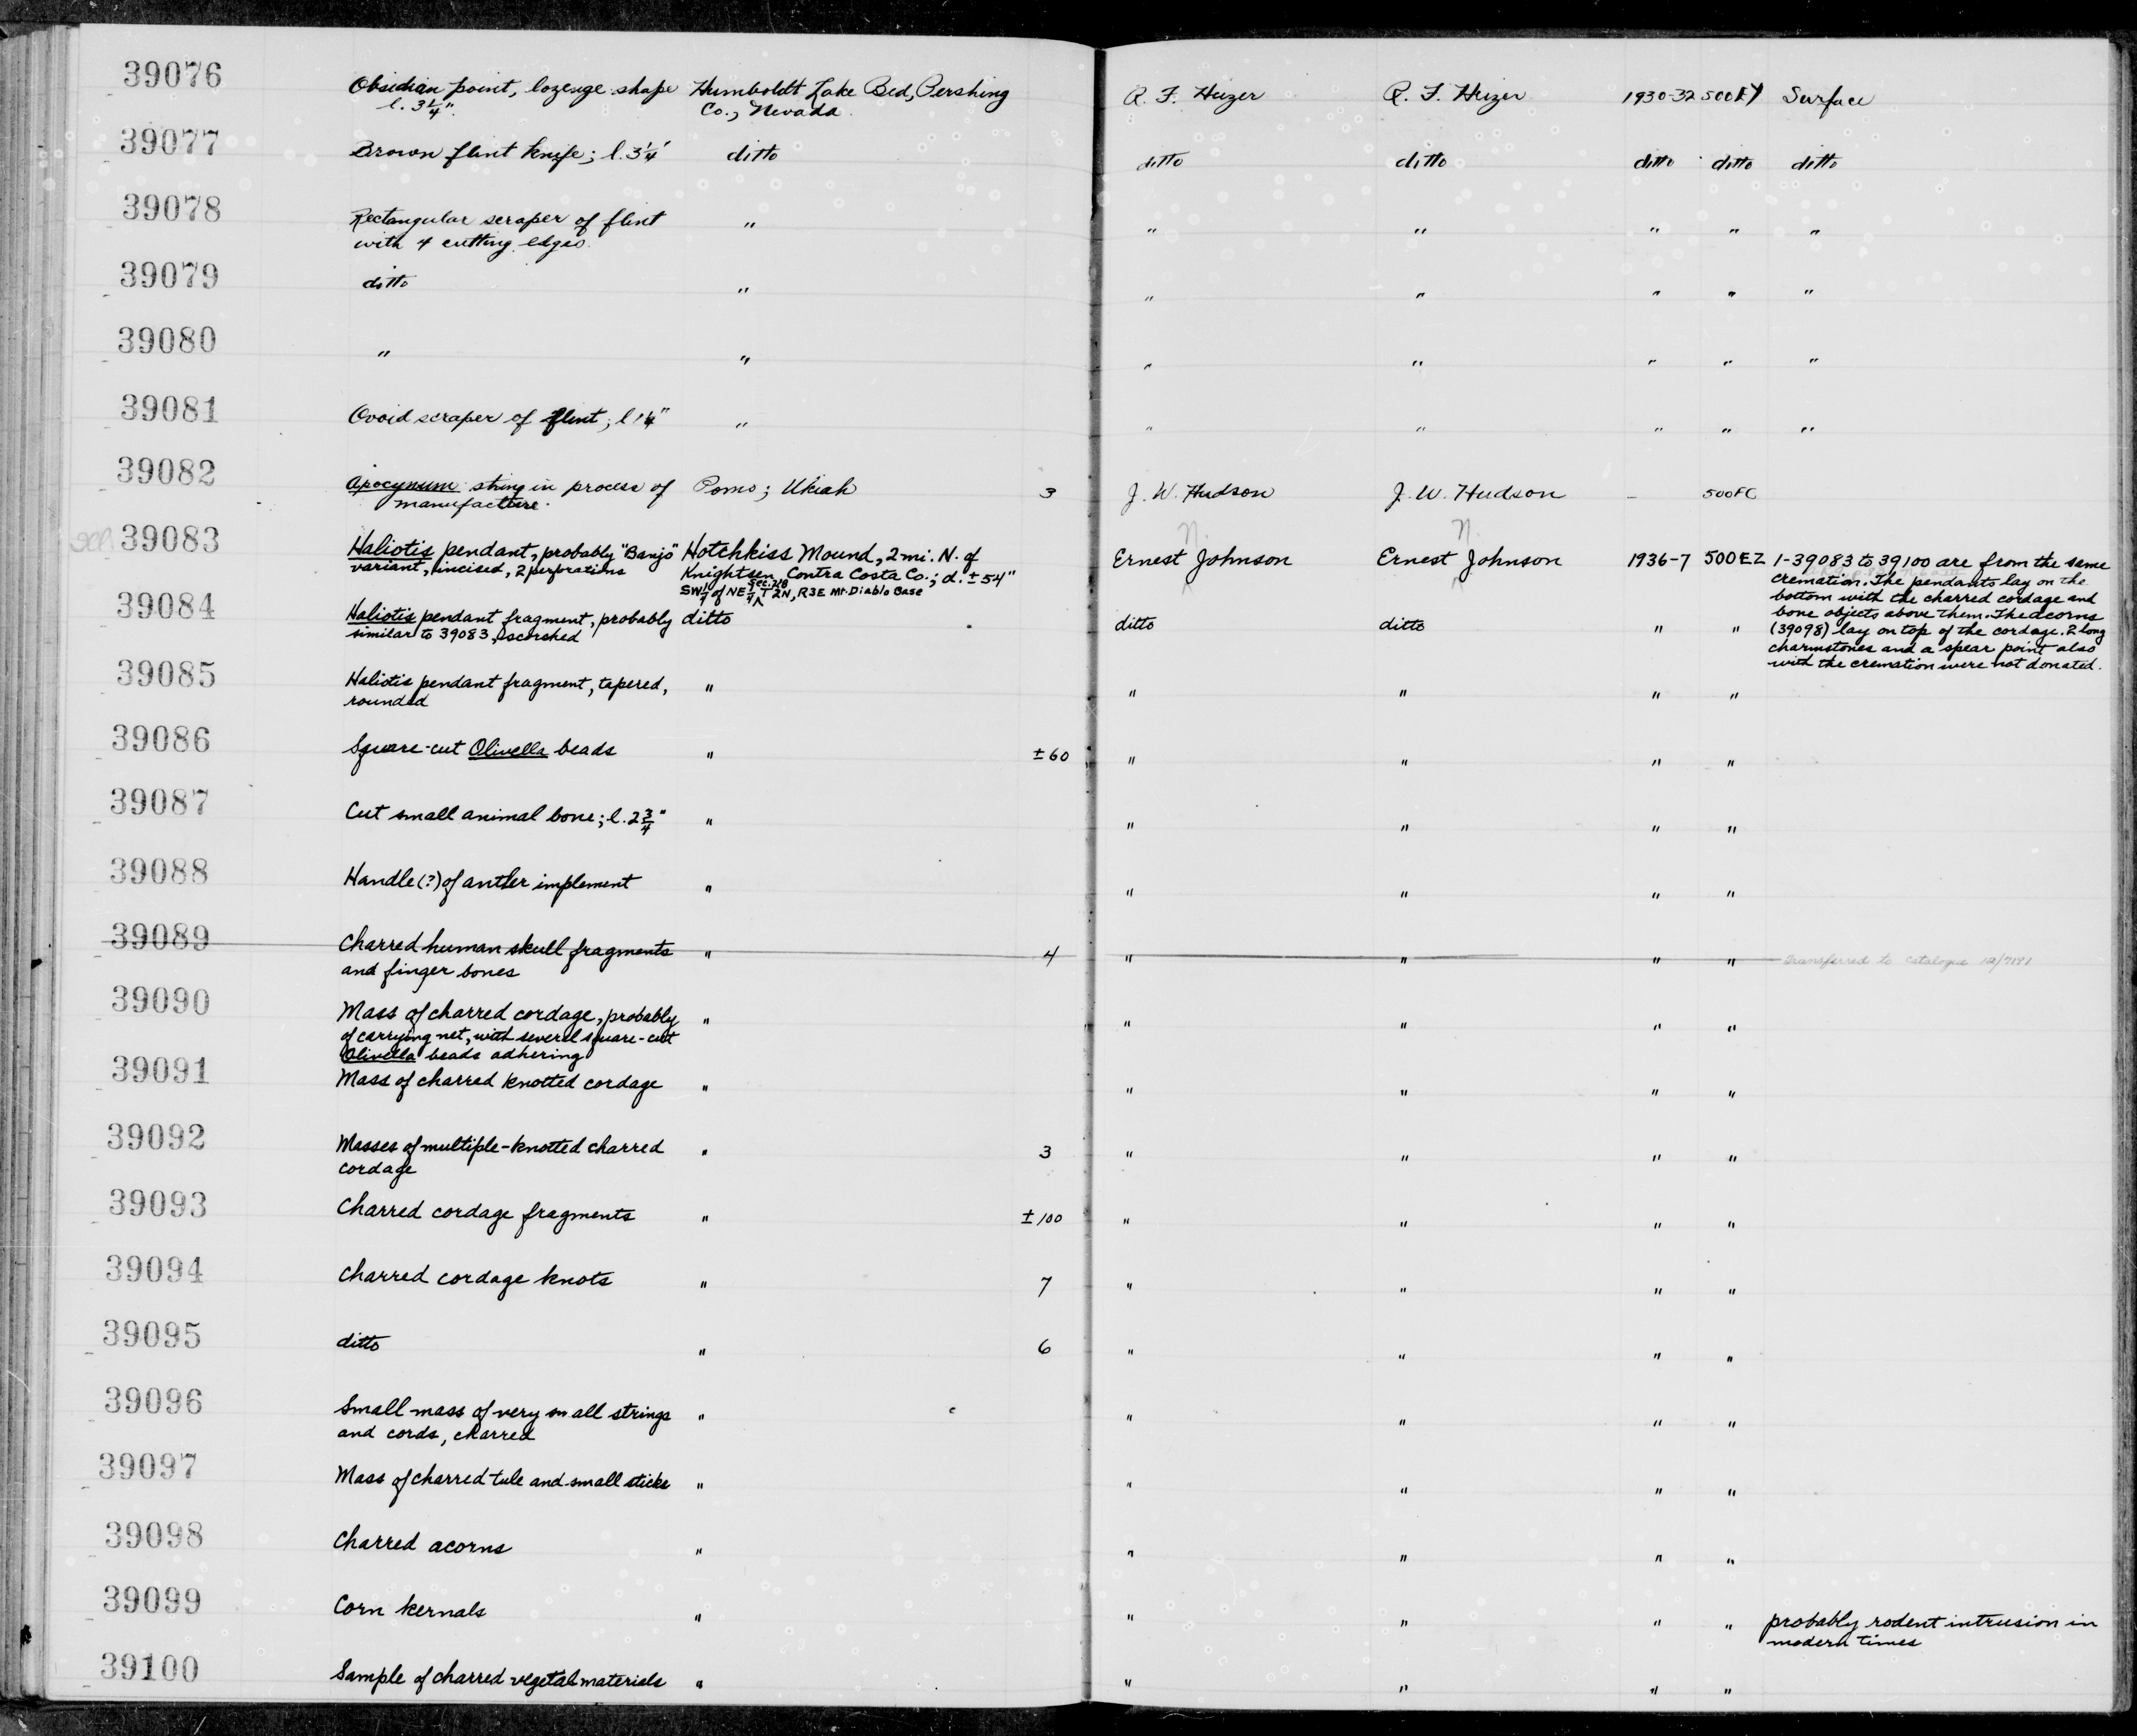 39076 Obsidian point, lozenge shape Humboldt Lake Bed, Pershing R. F. Heizer R. F. Heizer 1930-32 500EY Surface
l. 3 1/4". Co., Nevada.
39077 Brown flint knife; l. 3 1/4" ditto ditto ditto ditto ditto ditto
39078 Rectangular scraper of flint " " " " " "
with 4 cutting edges.
39079 ditto " " " " " "
39080 " " " " " " "
39081 Ovoid scraper of flint; l " " " " " "
39082 Apocynum string in process of Pomo; Ukiah 3 J. W. Hudson J. W. Hudson - 500FC
manufacture.
N. N.
39083 Haliotis pendant, probably "Banjo" Hotchkiss Mound, 2 mi. N. of Ernest Johnson Ernest Johnson 1936-7 500EZ 1-39083 to 39100 are from the same
variant, incised, 2 perforations Knightsen, Contra Costa Co.; d. ±54" cremation. The pendants lay on the
SW 1/4 of NE 1/4 Sec. T2N, R3E Mt. Diablo Base bottom with the charred cordage and
39084 Haliotis pendant fragment, probably ditto ditto ditto " " bone objects above them. The acorns
similar to 39083, scorched (39098) lay on top of the cordage. 2 long
charmstones and a spear point also
with the cremation were not donated.
39085 Haliotis pendant fragment, tapered, " " " " "
rounded
39086 Square-cut Olivella beads " ±60 " " " "
39087 Cut small animal bone; l. 2 3/4" " " " " "
39088 Handle (?) of antler implement " " " " "
39089 Charred human skull fragments " 4 " " " " Transferred to catalogue 12/7191
and finger bones
39090 Mass of charred cordage, probably " " " " "
of carrying net, with several square-cut
Olivella beads adhering
39091 Mass of charred knotted cordage " " " " "
39092 Masses of multiple-knotted charred " 3 " " " "
cordage
39093 Charred cordage fragments " ±100 " " " "
39094 Charred cordage knots " 7 " " " "
39095 ditto " 6 " " " "
39096 Small mass of very small strings " " " " "
and cords, charred
39097 Mass of charred tule and small sticks " " " " "
39098 Charred acorns " " " " "
39099 Corn kernals " " " " " probably rodent intrusion in
modern times
39100 Sample of charred vegetal materials " " " " "